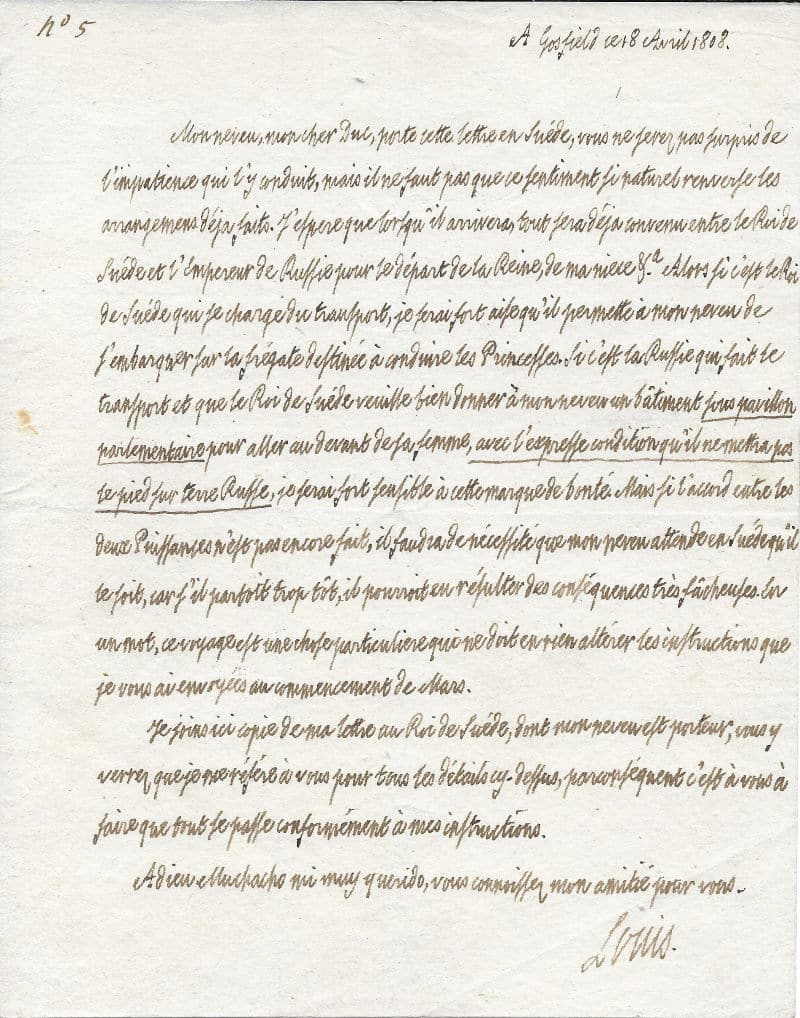 n° 5
A Gosfield ce 18 Avril 1808.
Mon neveu, mon cher Duc, porte cette lettre en Suéde, vous ne serez pas surpris de
l'impatience qui l'y conduit, mais il ne faut pas que ce sentiment si naturel renverse les
arrangemens déja faits. J'espere que lorsqu'il arrivera, tout sera déja convenu entre le Roi de
Suéde et l'Empereur de Russie pour le départ de la Reine, de ma niece &.a Alors si c'est le Roi
de Suéde qui se charge du transport, je serai fort aise qu'il permette à mon neveu de
s'embarquer sur la frégate destinée à conduire les Princesses. Si c'est la Russie qui fait le
transport et que le Roi de Suéde veuille bien donner à mon neveu un bâtiment sous pavillon
parlementaire pour aller au devant de sa femme, avec l'expresse condition qu'il ne mettra pas
le pied sur terre Russe, je serai fort sensible à cette marque de bonté. Mais si l'accord entre les
deux Puissances n'est pas encore fait, il faudra de nécessité que mon neveu attende en Suéde qu'il
le soit, car s'il partoit trop tôt, il pourroit en résulter des conséquences très fâcheuses. En
un mot, ce voyage est une chose particuliere qui ne doit en rien altérer les instructions que
je vous ai envoyées au commencement de Mars.
Je joins ici copie de ma lettre au Roi de Suéde, dont mon neveu est porteur, vous y
verrez que je me réfère à vous pour tous les détails cy-dessus, par conséquent c'est à vous à
faire que tout se passe conformément à mes instructions.
Adieu Muchacho mi muy querido, vous connoissez mon amitié pour vous.
Louis.